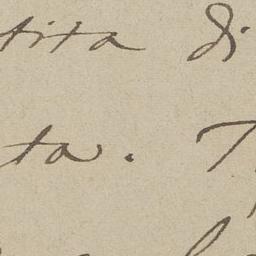 tita di
ta. T